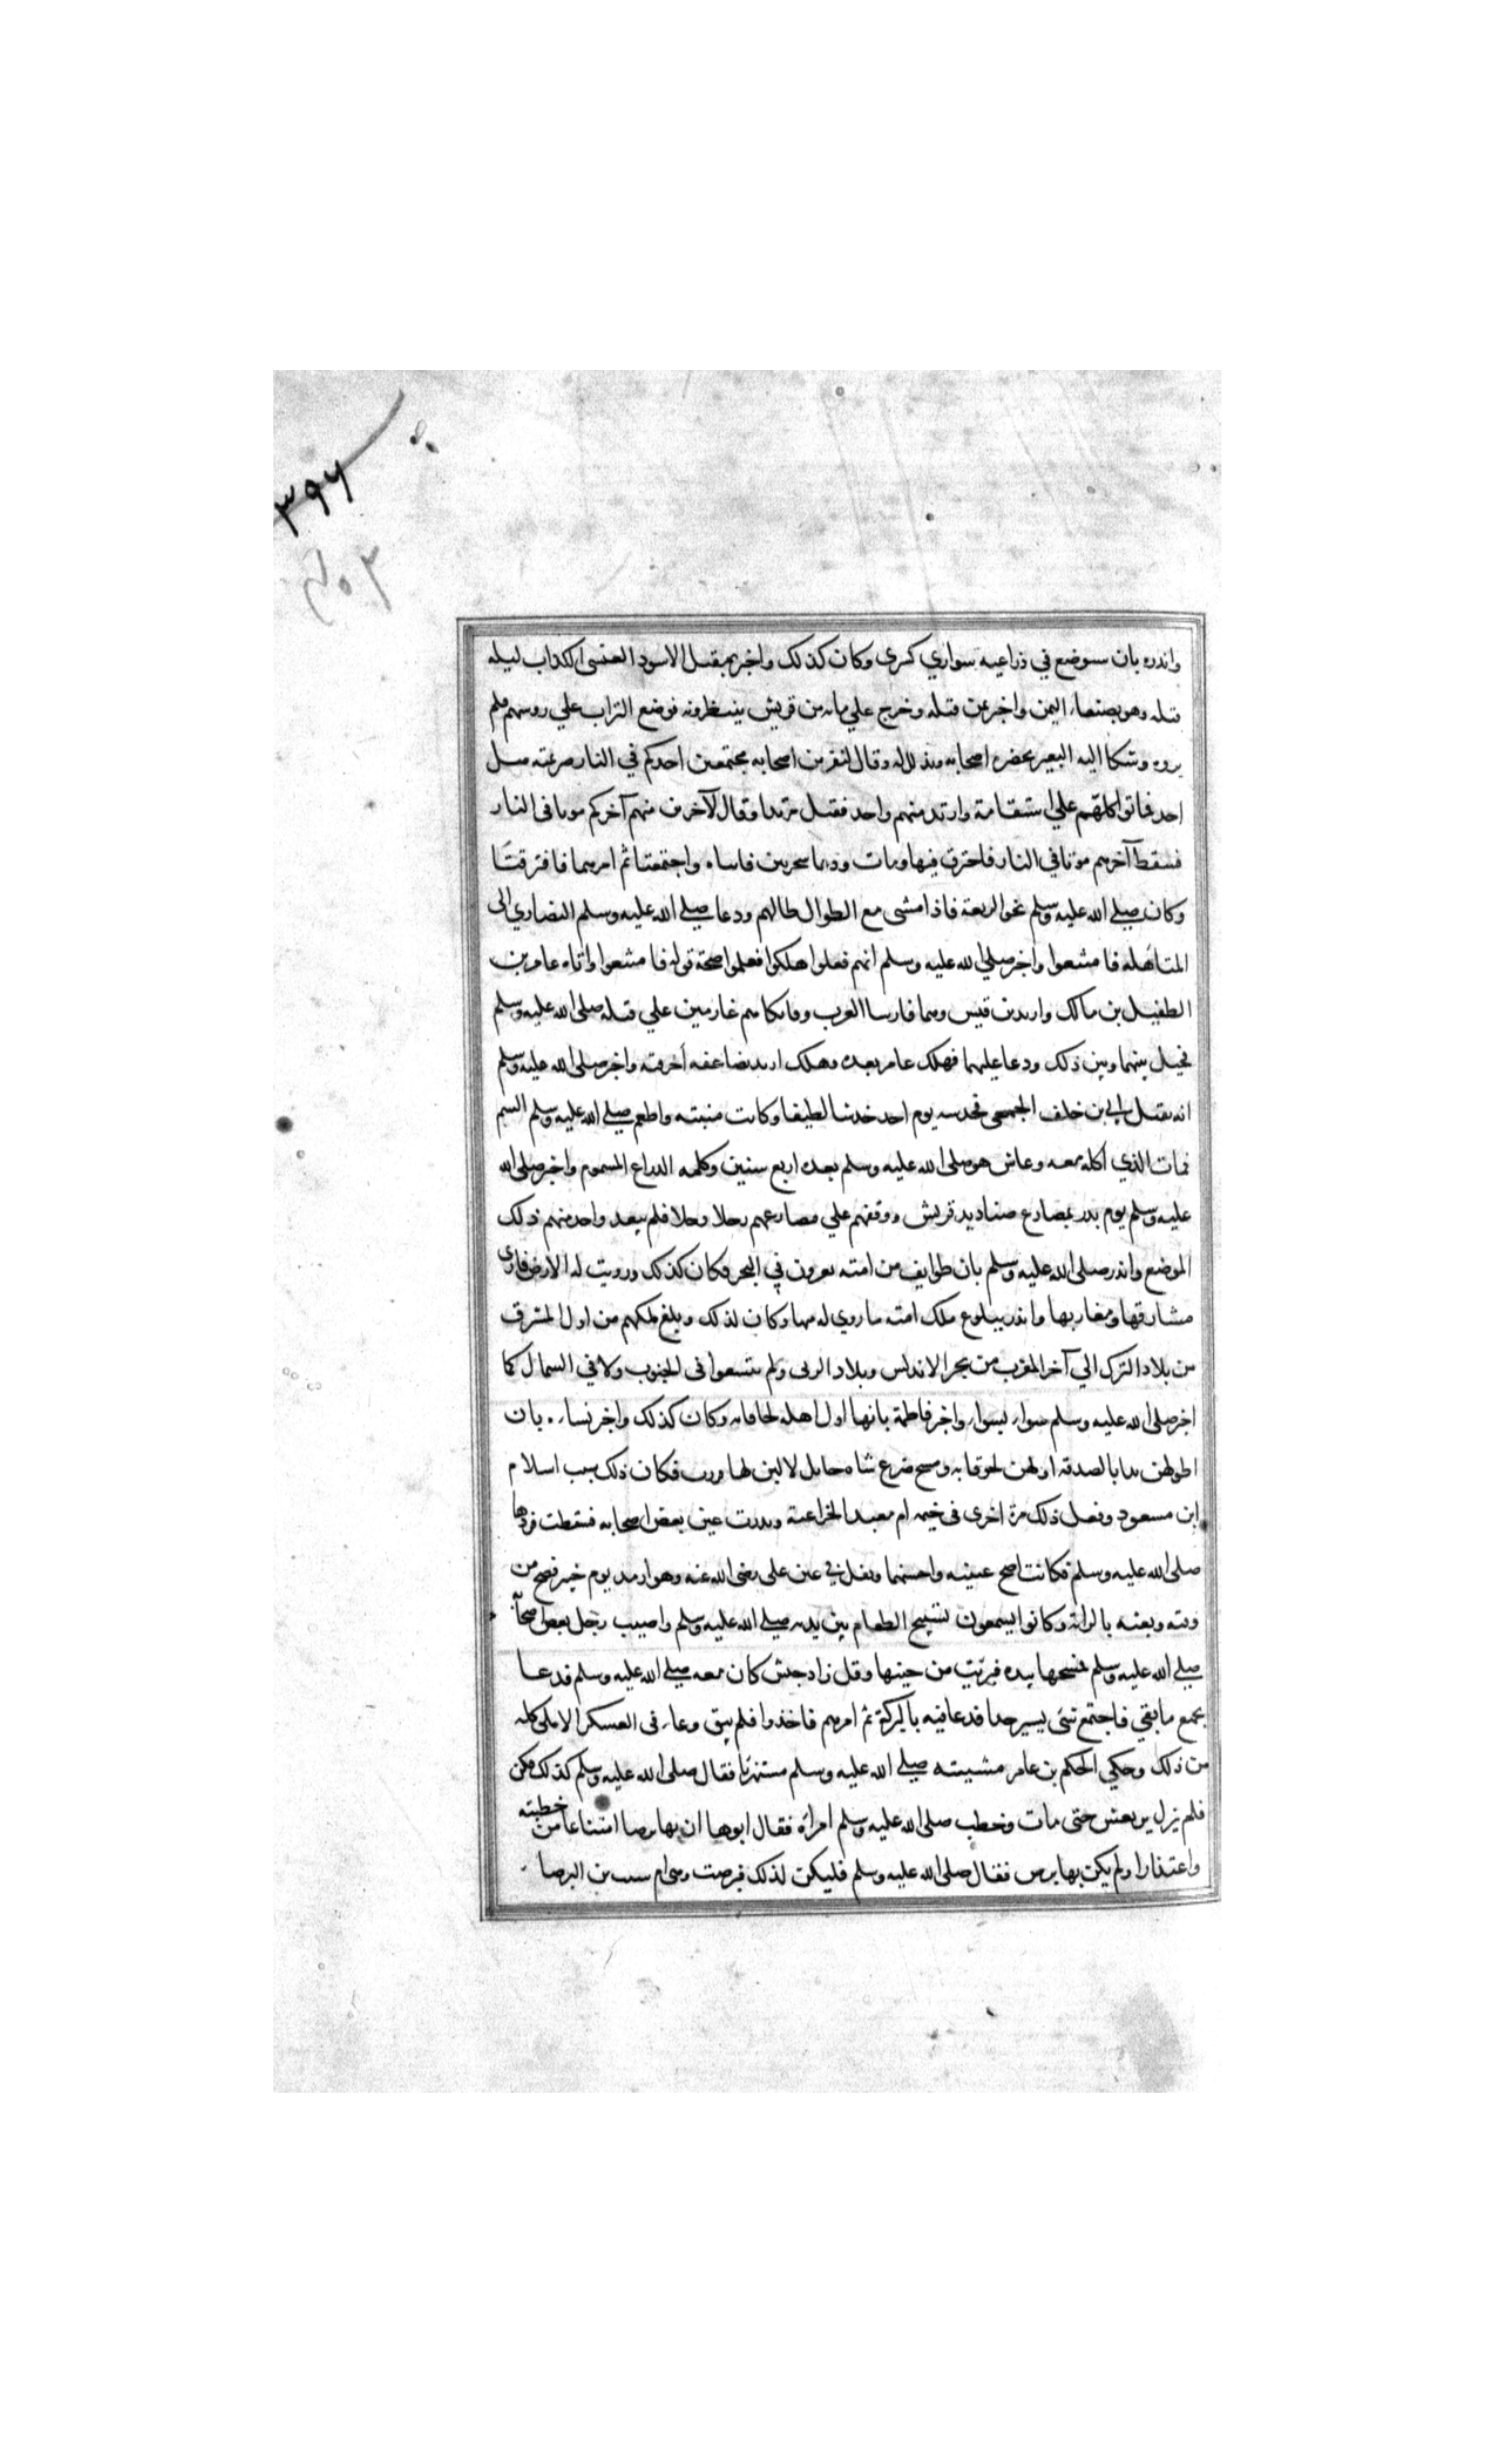 ٣٩٦
واندره بان سوضع في ذراعيه سواري كسرى وكان كذلك واخبر بمقتل الاسود العنسى الكداب ليله
قتله وهو بصنعاء اليمن واخبر بمن قتله وخرج علي مايه من قريش ينتظرونه فوضع التراب علي روسهم فلم
يروه وشكا اليه البعير بحضره اصحابه وتدلل له وقال لنفر من اصحابه مجتمعين احدكم في النار ضرسه مثل
احد فماتوا كلهم علي استقامة وارتد منهم واحد فقتل مرتدا وقال لآخرين منهم آخركم موتا فى النار
فسقط آخرهم موتا في النار فاحترق فيها ومات ودعا شجرتين فاتياه واجتمعتا ثم امرهما فافترقتا
وكان صلي الله عليه وسلم نحو الربعة فاذا مشى مع الطوال طالهم ودعا صلي الله عليه وسلم النصاري الى
المتاهله فامتنعوا واخبر صلي الله عليه وسلم انهم فعلوا هلكوا فعلموا صحة قوله فامتنعوا واتاه عامر بن
الطفيل بن مالك واربد بن قيس وهما فارسا العرب وفاتكاهم عازمين علي قتله صلى الله عليه وسلم
فحيل بينهما وبين ذلك ودعا عليهما فهلك عامر بغدة وهلك اربد بصاعقه أحرقته واخبر صلى الله عليه وسلم
انه يقتل ابي بن خلف الجمحي فخدشه يوم احد خدشا لطيفا وكانت منيته واطعم صلي الله عليه وسلم السم
فمات الذي اكله معه وعاش هو صلى الله عليه وسلم بعده اربع سنين وكلمه الدراع المسموم واخبر صلى الله
عليه وسلم يوم بدر بمصارع صناديد قريش ووقفهم علي مصارعهم رجلا رجلا فلم يبعد واحد منهم ذلك
الموضع واندر صلى الله عليه وسلم بان طوايف من امته يغزون في البحر فكان كذلك وزويت له الارض فارى
مشارقها ومغاربها واندر ببلوغ ملك امته ما زوي له منها وكان لذلك وبلغ ملكهم من اول المشرق
من بلاد الترك الي آخر المغرب من بحر الاندلس وبلاد البربر ولم يتسعوا فى الجنوب ولا في الشمال كما
اخبر صلى الله عليه وسلم سوا بسوا واخبر فاطمة بانها اول اهله لحاقا به وكان كذلك واخبر نساه بان
اطولهن يدا بالصدقه اولهن لحوقا به ومسح ضرع شاه حايل لا لبن لها ودرت فكان ذلك سبب اسلام
ابن مسعود وفعل ذلك مرة اخرى فى خيمه ام معبد الخزاعية وندرت عين بعض اصحابه فسقطت فردها
صلى الله عليه وسلم فكانت اصح عينيه واحسنهما وتفل في عين على رضى الله عنه وهو ارمد يوم خيبر فصح من
وقته وبعثه بالراية وكانوا يسمعون تسبيح الطعام بين يديه صلي الله عليه وسلم واصيب رجل بعض اصحابه
صلي الله عليه وسلم فمسحها بيده فبرئت من حينها وقل زاد جيش كان معه صلي الله عليه وسلم فدعا
بجمع ما بقي فاجتمع شئ يسير جدا فدعا فيه بالبركة ثم امرهم فاخذوا فلم يبق وعاء فى العسكر الا ملى كله
من ذلك وحكي الحكم بن عامر مشيته صلي الله عليه وسلم مستهزئا فقال صلى الله عليه وسلم كذلك فكن
فلم يزل يرتعش حتى مات وخطب صلى الله عليه وسلم امرأة فقال ابوها ان بها برصا امتناعا من خطبته
واعتذارا ولم يكن بها برص فقال صلى الله عليه وسلم فليكن لذلك فبرصت وهي ام بن البرصا